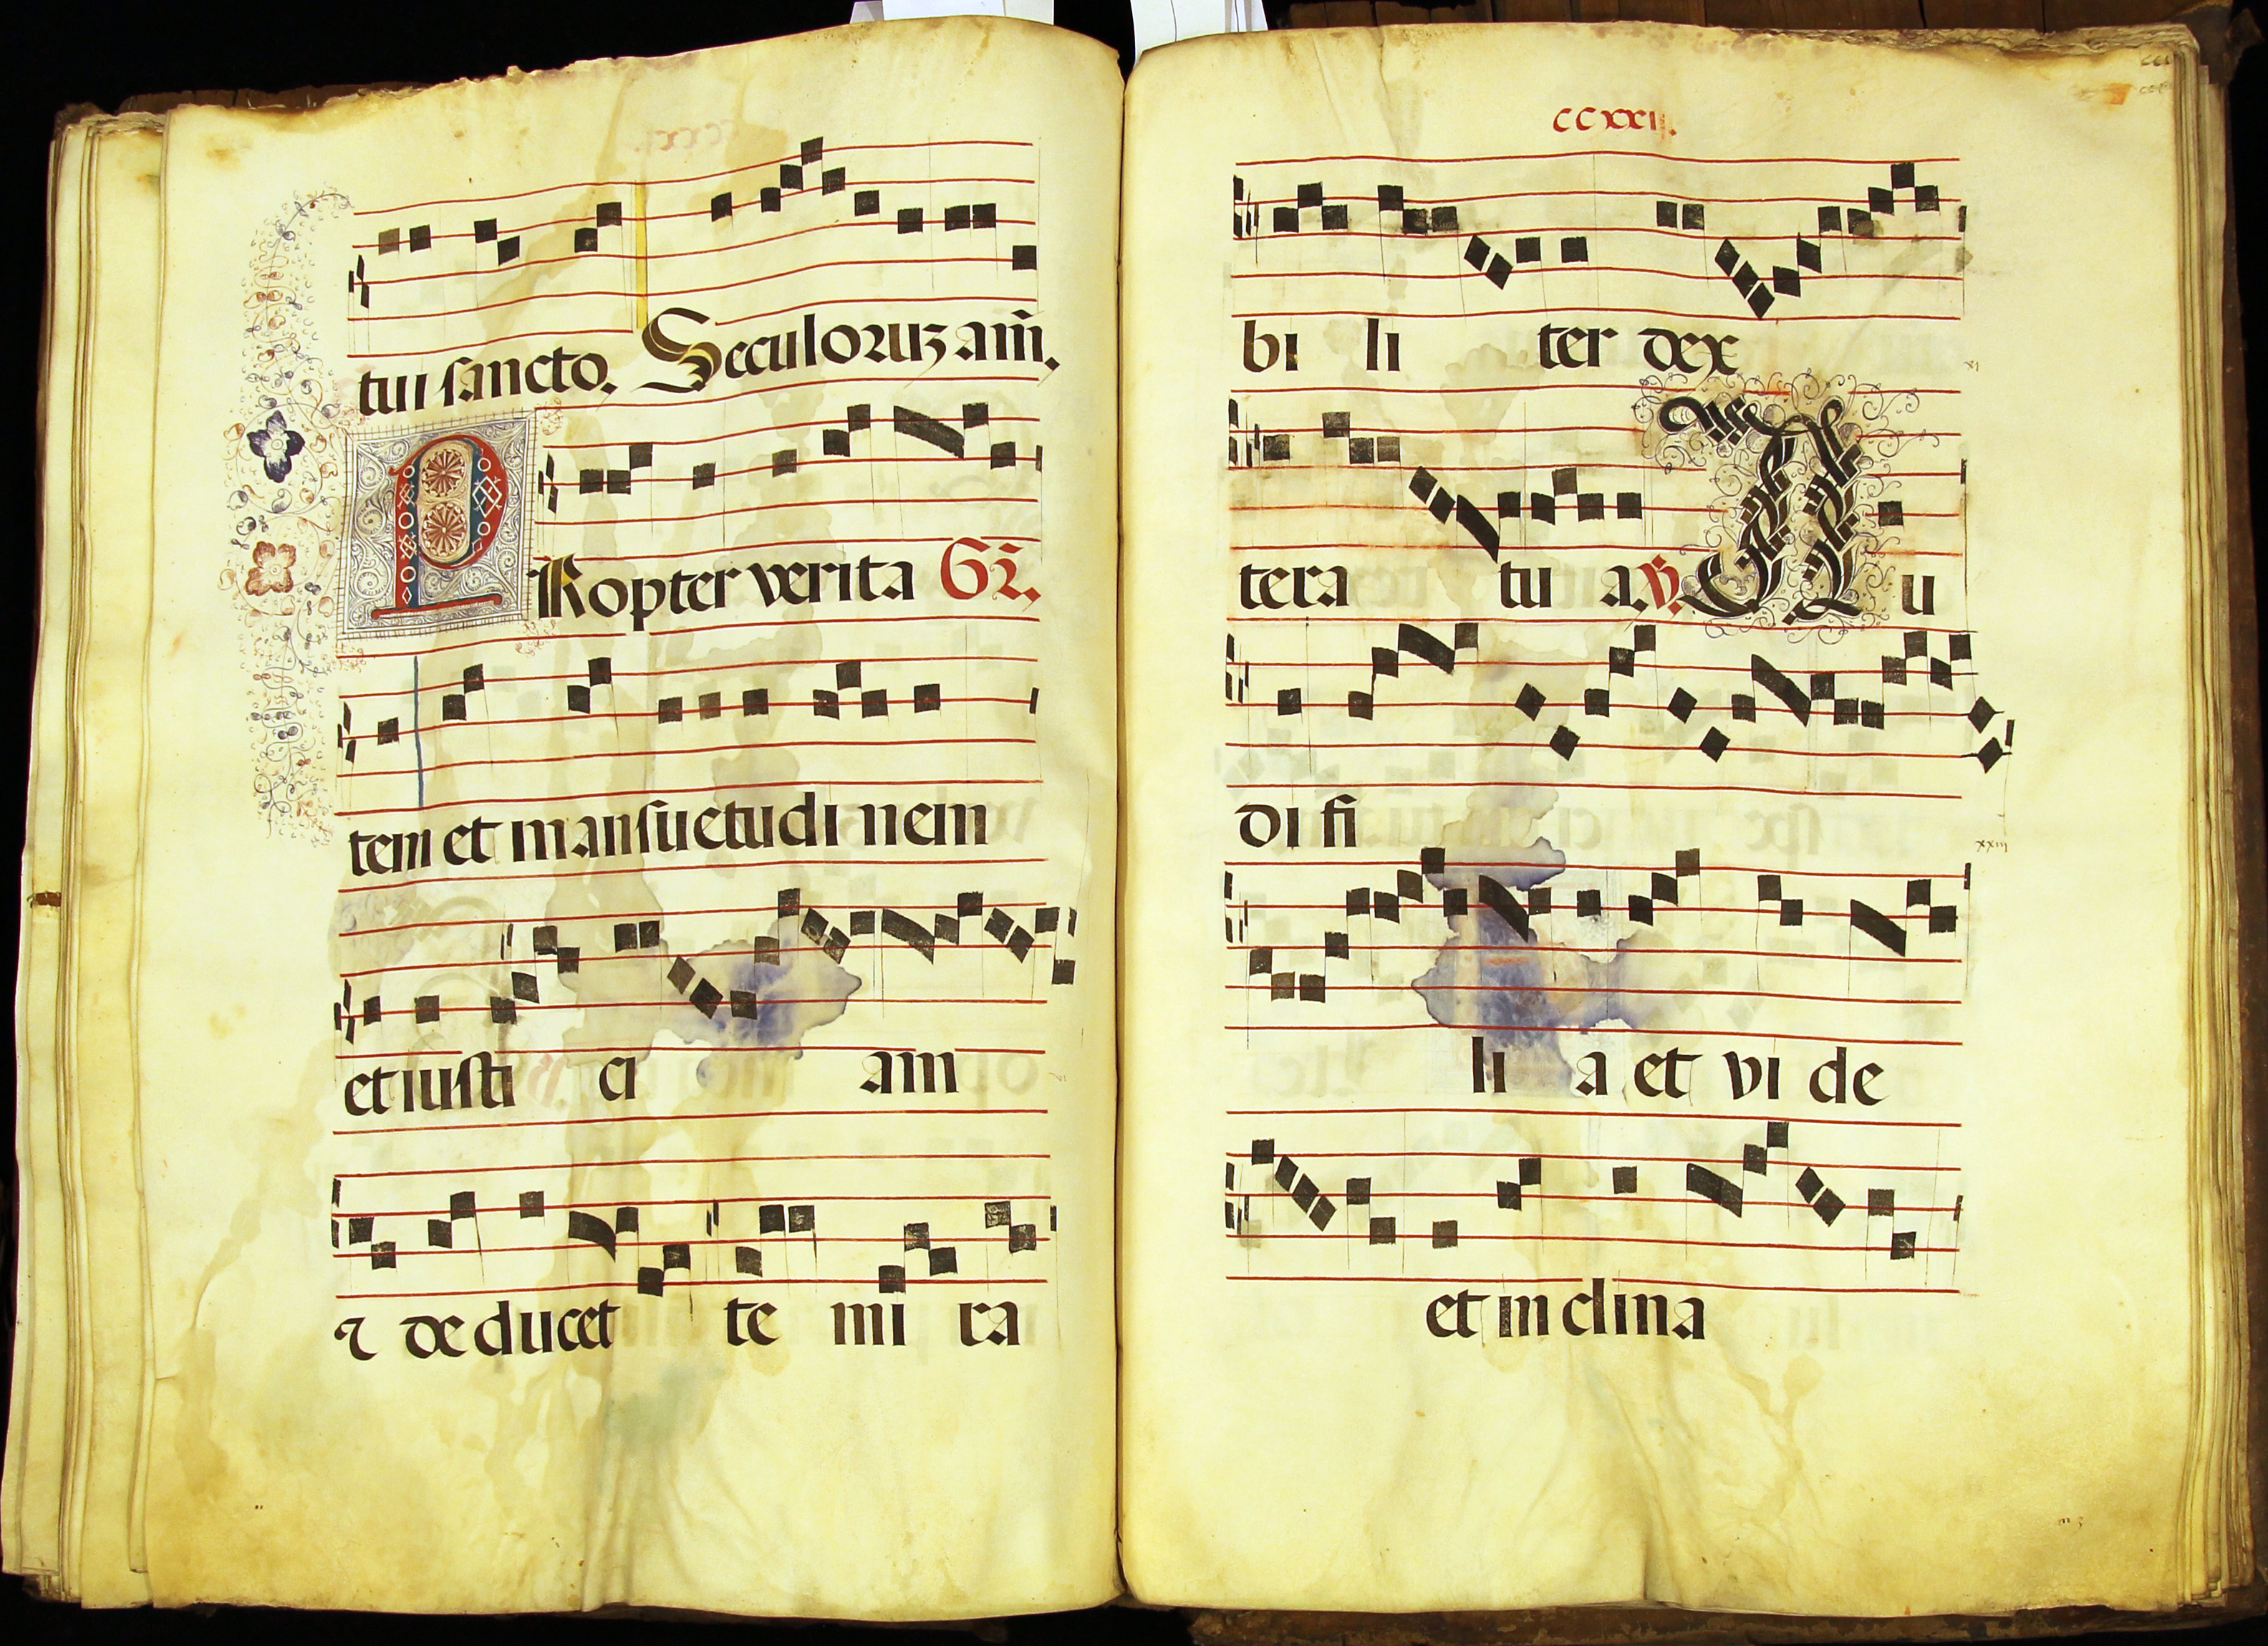 tui sancto. Seculoruꝫ am̄.
PRopter verita Gr̄.
tem et mansuetudi nem
et iusti ci am
⁊ deducet te mi ra
CCXXII.
bi li ter dex
tera tu a. ℣. Au
di fi
li a et vi de
et in clina